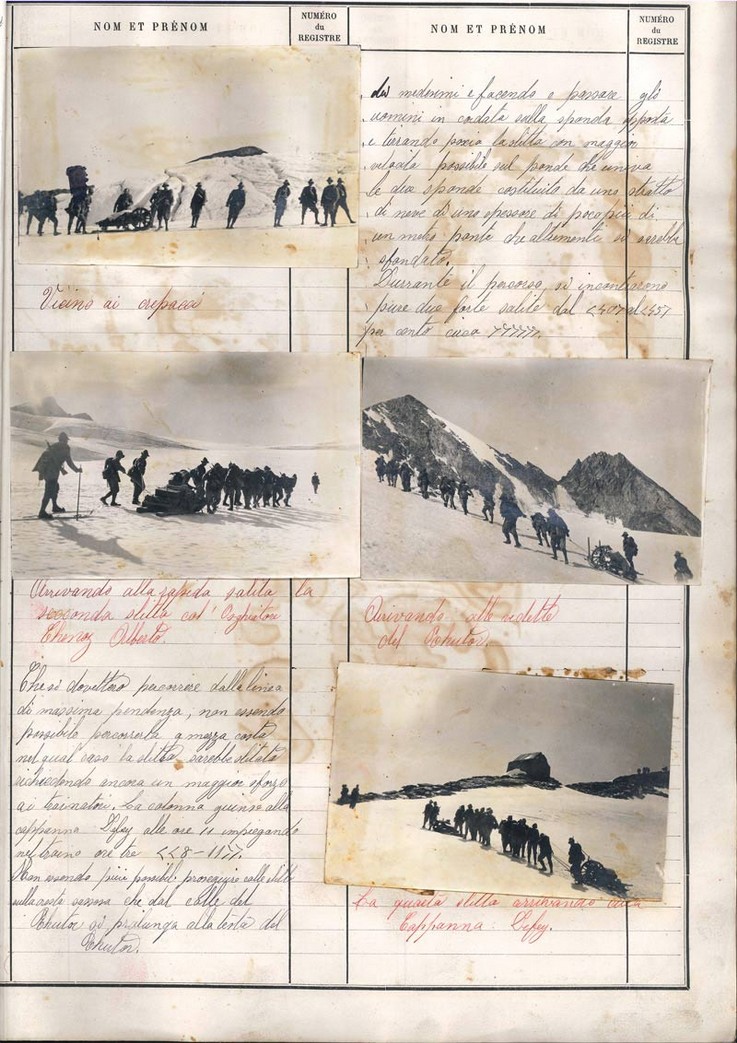 NOM ET PRÉNOM
NUMÉRO
du
REGISTRE
NOM ET PRÉNOM
NUMÉRO
du
REGISTRE
Vicino ai crepacci
Arrivando alla rapida salita la
seconda slitta col
Chenoz Alberto.
Che si dovettero percorrere dalla linea
di massima pendenza, non essendo
possibile percorrerla a mezza costa
nel qual caso la slitta sarebbe slittata
richiedendo ancora un maggior sforzo
ai trainatori. La colonna giunse alla
cappanna alle ore 11 impiegando
nel traino ore tre
Non essendo più possibile proseguire colle slitte
sulla costa sassosa che dal colle del
Rhutor si prolunga alla testa del
Rhutor.
dei medesimi e facendo passare gli
uomini in cordata sulla sponda opposta
e tirando poscia la slitta con maggior
velocità possibile sul ponte che univa
le due sponde costituito da uno stratto
di neve di uno spessore di poco più di
un metro ponte che altrimenti si sarebbe
sfondato.
Durrante il percorso, si incontrarono
pure due forte salite dal
per cento circa
Arrivando alle vedette
del Rhutor.
La quarta slitta arrivando alla
Cappanna